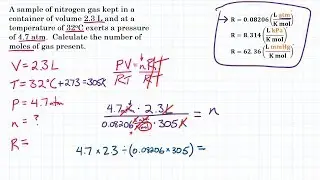 A sample of nitrogen gas kept in a
container of volume 2.3 L and at a
temperature of 32°C exerts a pressure
of 4.7 atm. Calculate the number of
moles of gas present.
R = 0.08206 (L atm / K mol)
R = 8.314 (L kPa / K mol)
R = 62.36 (L mmHg / K mol)
V = 2.3 L
T = 32°C +273 = 305K
P = 4.7 atm
n = ?
R =
PV = nRT
RT RT
4.7 atm · 2.3 L = n
0.08206 · 305 K
4.7 × 2.3 ÷ (0.08206 × 305) =